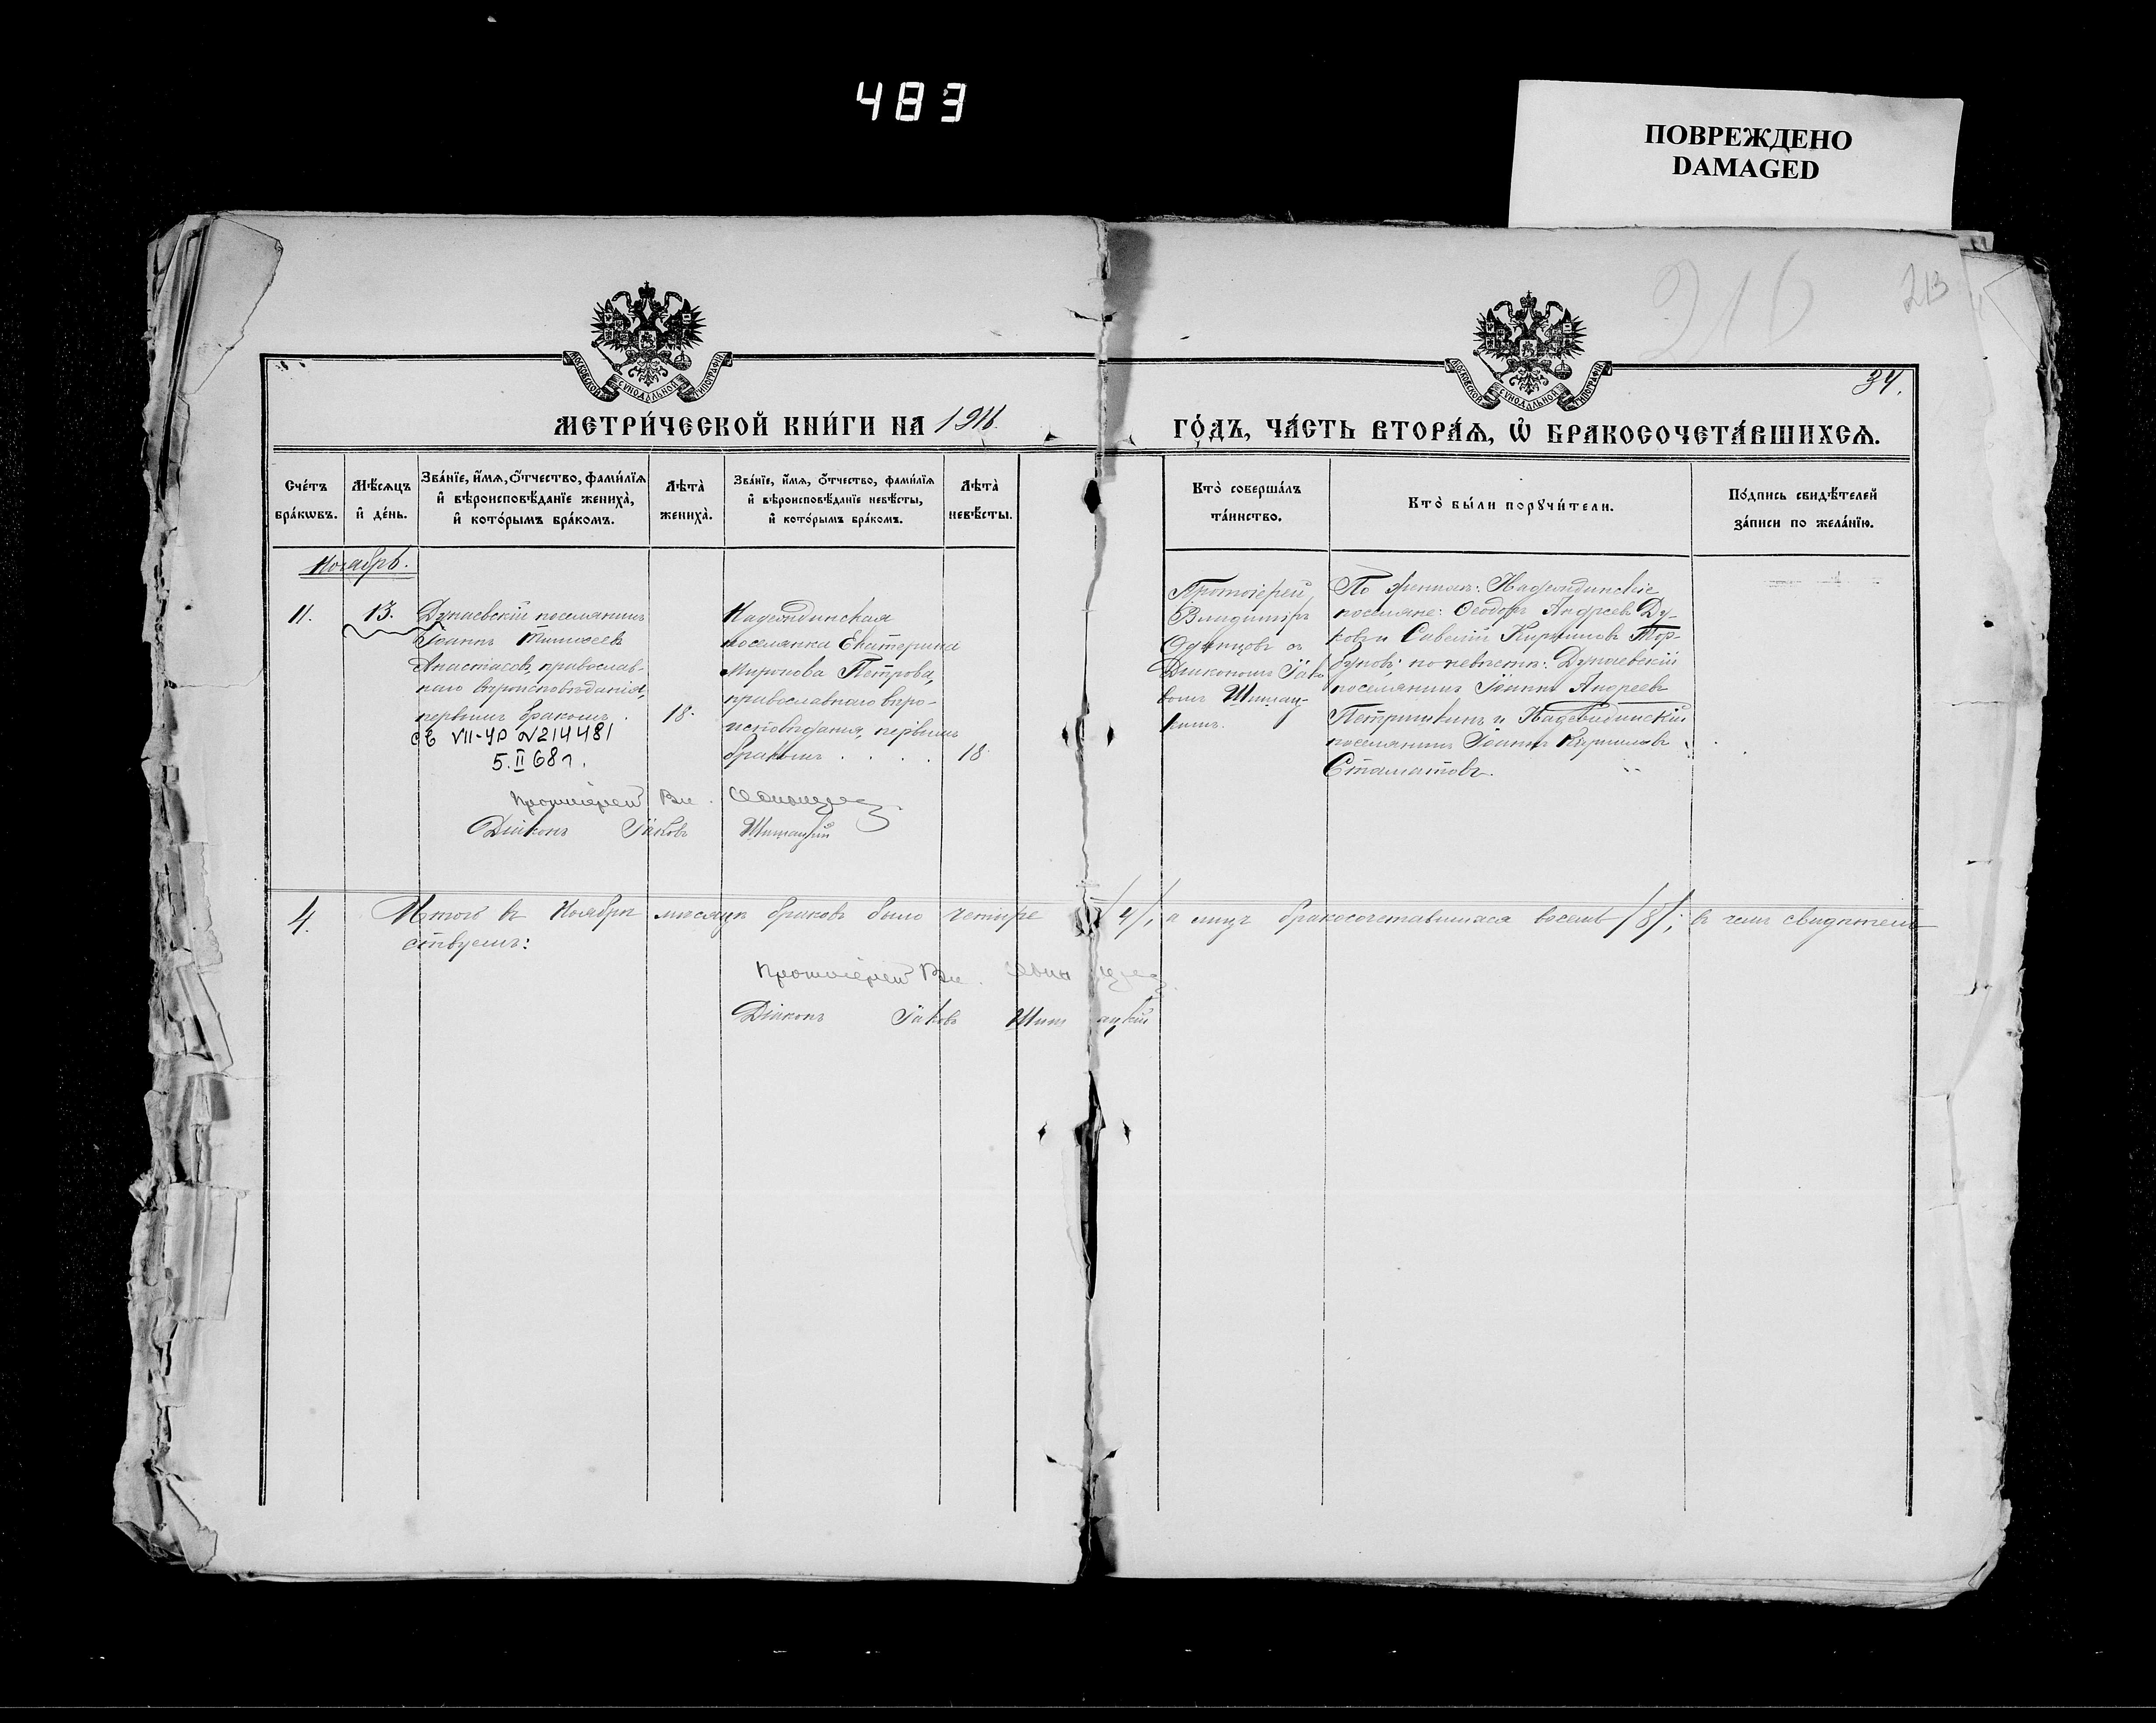 483
ПОВРЕЖДЕНО
DAMAGED
216
213
34.
МОСКОВСКОЙ СѴНОДАЛЬНОЙ ТИПОГРАФІИ
МОСКОВСКОЙ СѴНОДАЛЬНОЙ ТИПОГРАФІИ
МЕТРИ́ЧЕСКОЙ КНИ́ГИ НА 1911.
ГО́ДЪ, ЧА́СТЬ ВТОРА́Ѧ, Ѽ БРАКОСОЧЕТА́ВШИХСѦ.
Сче́тъ
бра́кѡвъ.
Мѣ́сѧцъ
и҆ де́нь.
Зва́нїе, и҆́мѧ, ѻ҆́тчество, фами́лїѧ
и҆ вѣроисповѣ́данїе жениха̀,
и҆ кото́рымъ бра́комъ.
Лѣта̀
жениха̀.
Зва́нїе, и҆́мѧ, ѻ҆́тчество, фами́лїѧ
и҆ вѣроисповѣ́данїе невѣ́сты,
и҆ кото́рымъ бра́комъ.
Лѣта̀
невѣ́сты.
Кто̀ соверша́лъ
та́инство.
Кто̀ бы́ли порꙋчи́тели.
По́дпись свидѣ́телей
за́писи по жела́нїю.
Ноябрь.
11.
13.
Дунаевскій поселянинъ
Іоаннъ Тимофеевъ
Анастасовъ, православ-
наго вѣроисповѣданія,
первымъ бракомъ.
св VII-УР №214481
5.II 68 г.
18.
Надеждинская
поселянка Екатерина
Миронова Петрова,
православнаго вѣро-
исповѣданія, первымъ
бракомъ . . . .
18
Протоіерей
Владиміръ
Одинцовъ съ
Діакономъ Іако-
вомъ Шишац-
кимъ.
По женихѣ: Надеждинскіе
поселяне: Ѳеодоръ Андреевъ Ду-
ковъ и Савелій Кирилловъ Тор-
буновъ; по невѣстѣ: Дунаевскій
поселянинъ Іоаннъ Андреевъ
Петришкинъ и Надеждинскій
поселянинъ Іоаннъ Кирилловъ
Стаматовъ.
Протоіерей Вл. Одинцовъ
Діаконъ Іаковъ Шишацкій
4. Итого въ Ноябрѣ мѣсяцѣ браковъ было четыре /4/, а лицъ бракосочетавшихся восемь /8/; въ чемъ свидѣтель-
ствуемъ:
Протоіерей Вл. Одинцовъ
Діаконъ Іаковъ Шишацкій